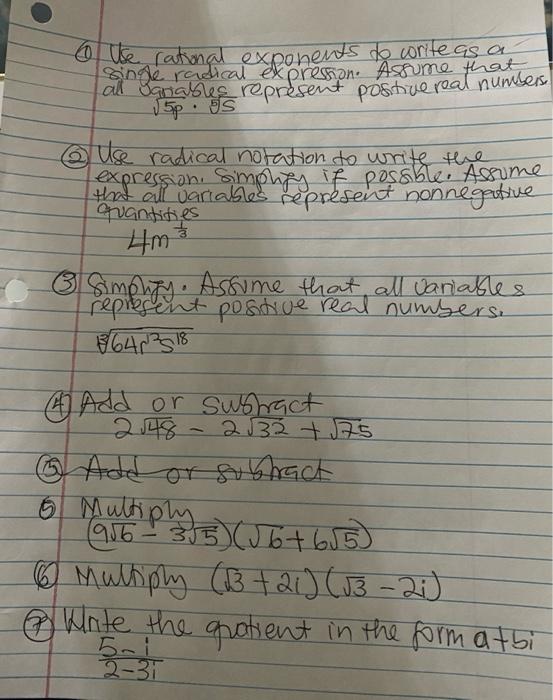 ① Use rational exponents to write as a
single radical expression. Assume that
all variables represent positive real numbers
√5p · ∛5
② Use radical notation to write the
expression. Simplify if possible. Assume
that all variables represent nonnegative
quantities
4m^(1/3)
③ Simplify. Assume that all variables
represent positive real numbers.
∛64r¹²s¹⁸
④ Add or subtract
2√48 - 2√32 + √75
⑤ Add or subtract
5 Multiply
(9√6 - 3√5)(√6 + 6√5)
⑥ Multiply (√3 + 2i)(√3 - 2i)
⑦ Write the quotient in the form a+bi
5-i
2-3i